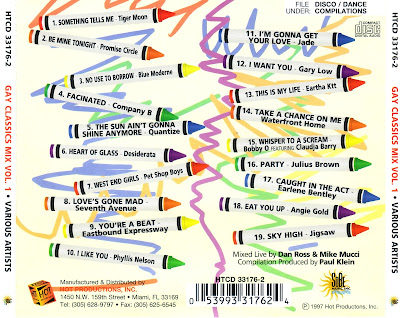 HTCD 33176-2
GAY CLASSICS MIX VOL. 1 • VARIOUS ARTISTS
FILE UNDER: DISCO / DANCE COMPILATIONS
COMPACT
disc
DIGITAL AUDIO
1. SOMETHING TELLS ME - Tiger Moon
2. BE MINE TONIGHT - Promise Circle
3. NO USE TO BORROW - Blue Moderne
4. FACINATED - Company B
5. THE SUN AIN'T GONNA
SHINE ANYMORE - Quantize
6. HEART OF GLASS - Desiderata
7. WEST END GIRLS - Pet Shop Boys
8. LOVE'S GONE MAD -
Seventh Avenue
9. YOU'RE A BEAT -
Eastbound Expressway
10. I LIKE YOU - Phyllis Nelson
11. I'M GONNA GET
YOUR LOVE - Jade
12. I WANT YOU - Gary Low
13. THIS IS MY LIFE - Eartha Ktt
14. TAKE A CHANCE ON ME
Waterfront Home
15. WHISPER TO A SCREAM
Bobby O FEATURING Claudja Barry
16. PARTY - Julius Brown
17. CAUGHT IN THE ACT -
Earlene Bentley
18. EAT YOU UP - Angie Gold
19. SKY HIGH - Jigsaw
Mixed Live by Dan Ross & Mike Mucci
Compilation Produced by Paul Klein
HOT
Manufactured & Distributed by
HOT PRODUCTIONS, INC.
1450 N.W. 159th Street • Miami, FL 33169
Tel: (305) 628-9797 • Fax: (305) 625-6545
HTCD 33176-2
0 53993 31762 4
℗ © 1997 Hot Productions, Inc.
HTCD 33176-2
GAY CLASSICS MIX VOL. 1 • VARIOUS ARTISTS